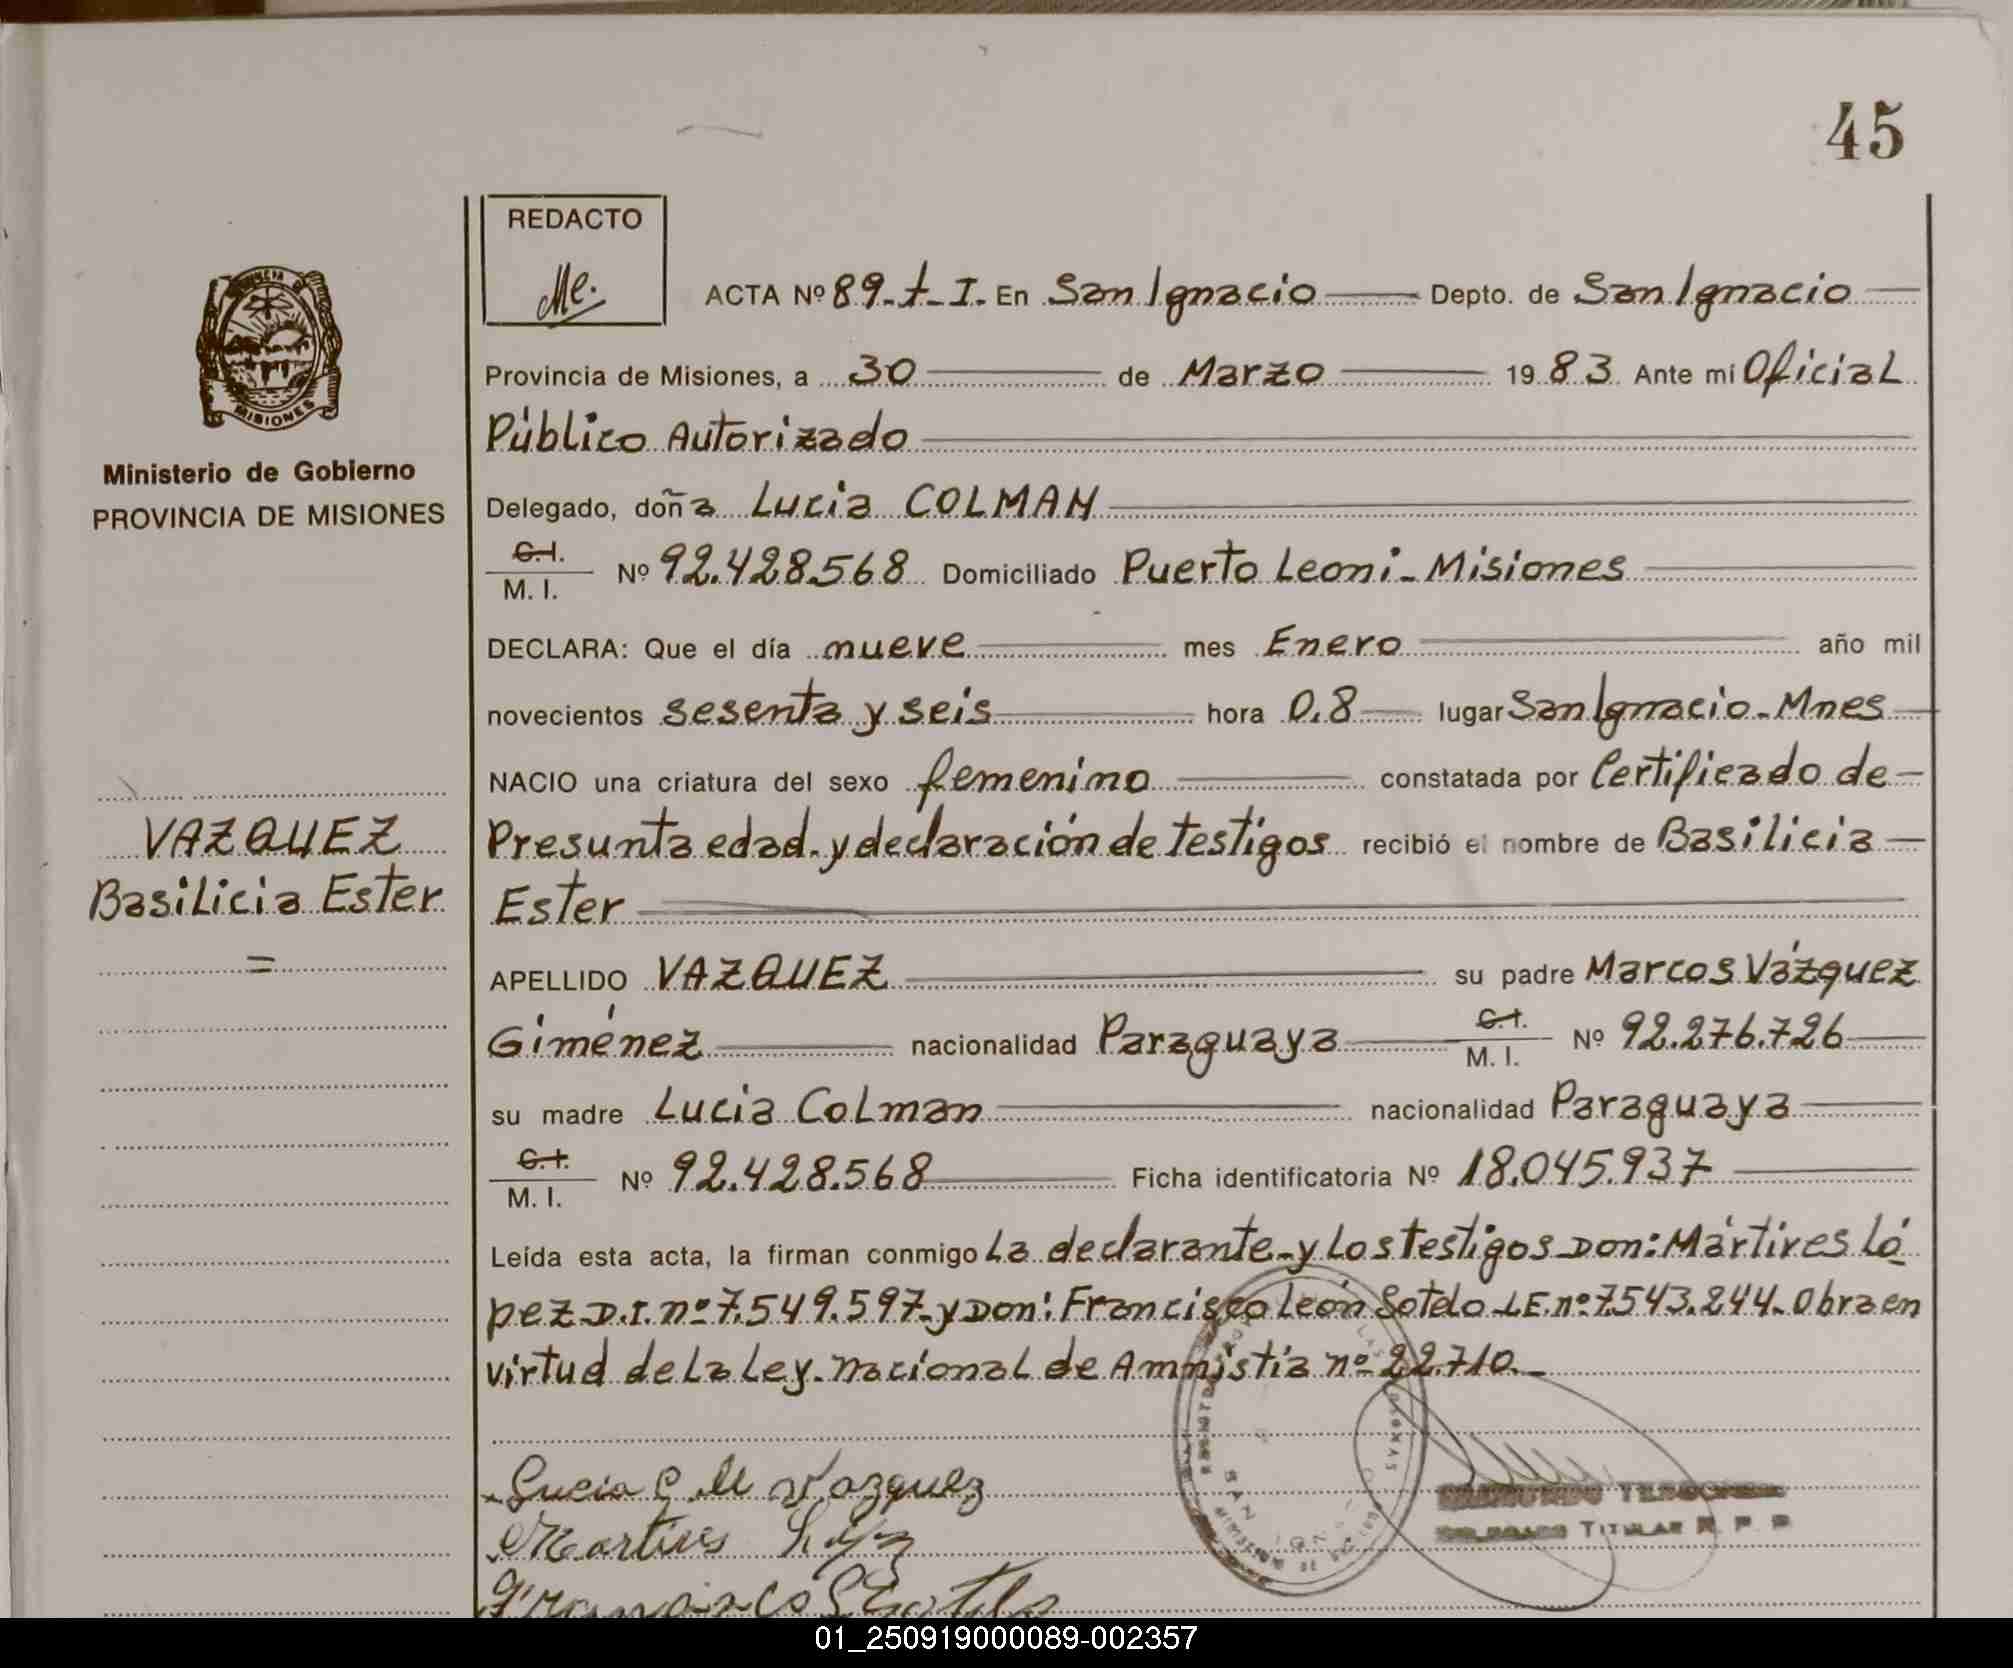 45
REDACTO
Me.
ACTA Nº 89-t-I. En San Ignacio Depto. de San Ignacio
Provincia de Misiones, a 30 de Marzo 1983 Ante mi Oficial
Público Autorizado
Delegado, doña Lucia COLMAN
C.I.
M. I. Nº 92.428.568 Domiciliado Puerto Leoni - Misiones
DECLARA: Que el día nueve mes Enero año mil
novecientos sesenta y seis hora 0.8 lugar San Ignacio - Mnes
NACIO una criatura del sexo femenino constatada por Certificado de
Presunta edad. y declaración de testigos recibió el nombre de Basilicia
Ester
APELLIDO VAZQUEZ su padre Marcos Vázquez
Giménez nacionalidad Paraguaya C.I. M. I. Nº 92.276.726
su madre Lucia Colman nacionalidad Paraguaya
C.I.
M. I. Nº 92.428.568 Ficha identificatoria Nº 18.045.937
Leída esta acta, la firman conmigo La declarante - y Los testigos Don: Mártires Ló
pez D.I. nº 7.549.597 - y Don: Francisco León Sotelo - L.E. nº 7.543.244 - Obra en
virtud de La Ley. nacional de Amnistia nº 22.710.-
Lucia C. de Vazquez
Martires López
Francisco Sotelo
TITULAR R. P. P.
SAN
MISIONES
Ministerio de Gobierno
PROVINCIA DE MISIONES
VAZQUEZ
Basilicia Ester
=
01_250919000089-002357